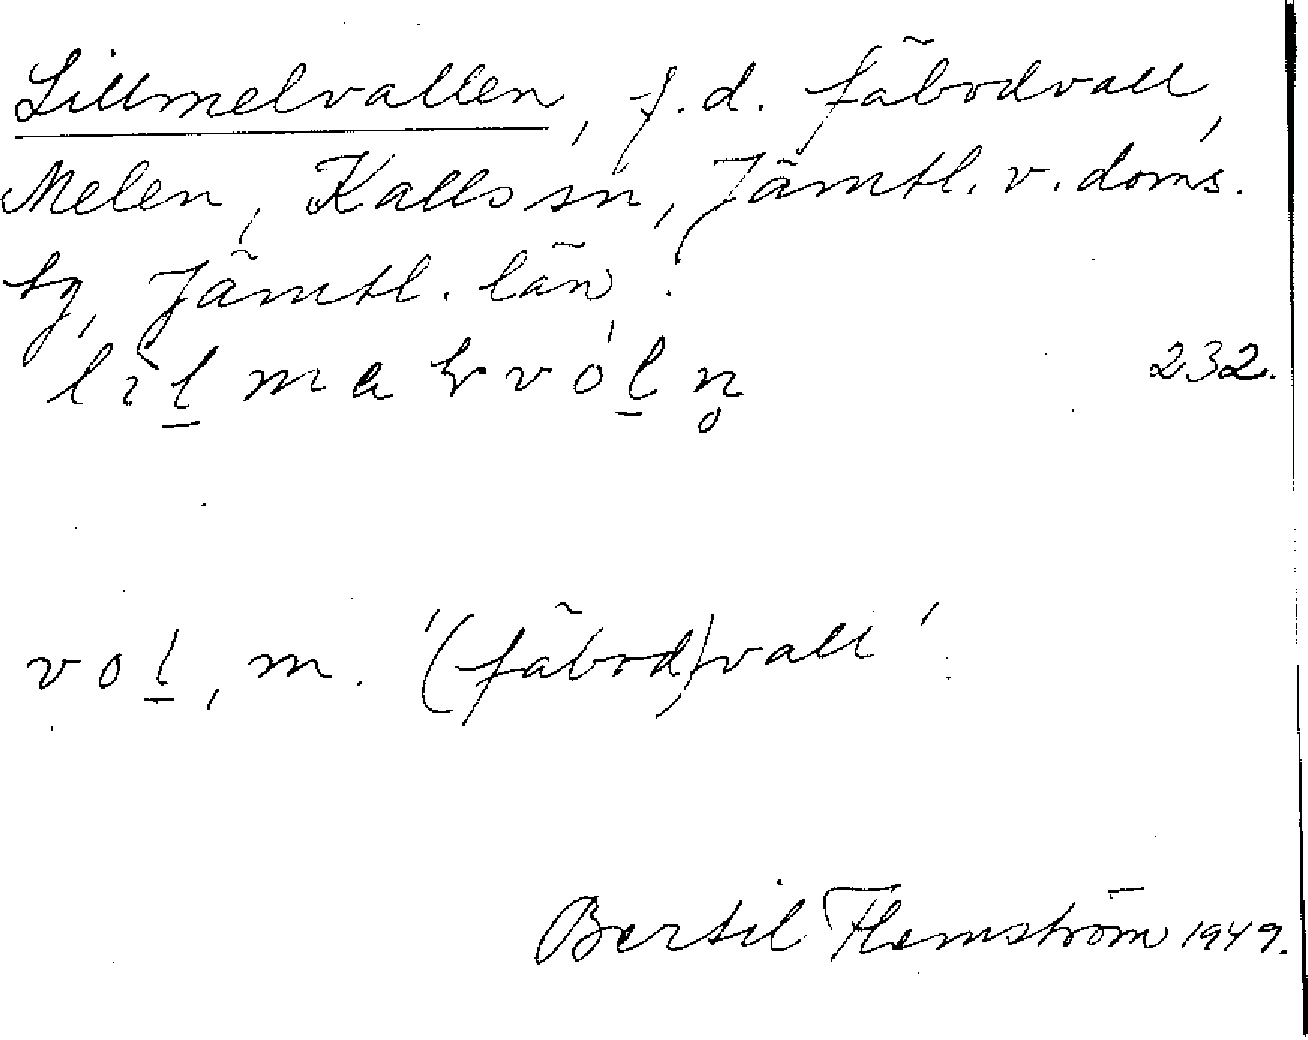 Lillmelvallen, f.d. fäbodvall,
Melen, Kalls sn, Jämtl. v. doms.
tg, Jämtl. län.
232.
vol̲, m. '(fäbod)vall'.
Bertil Flemström 1949.